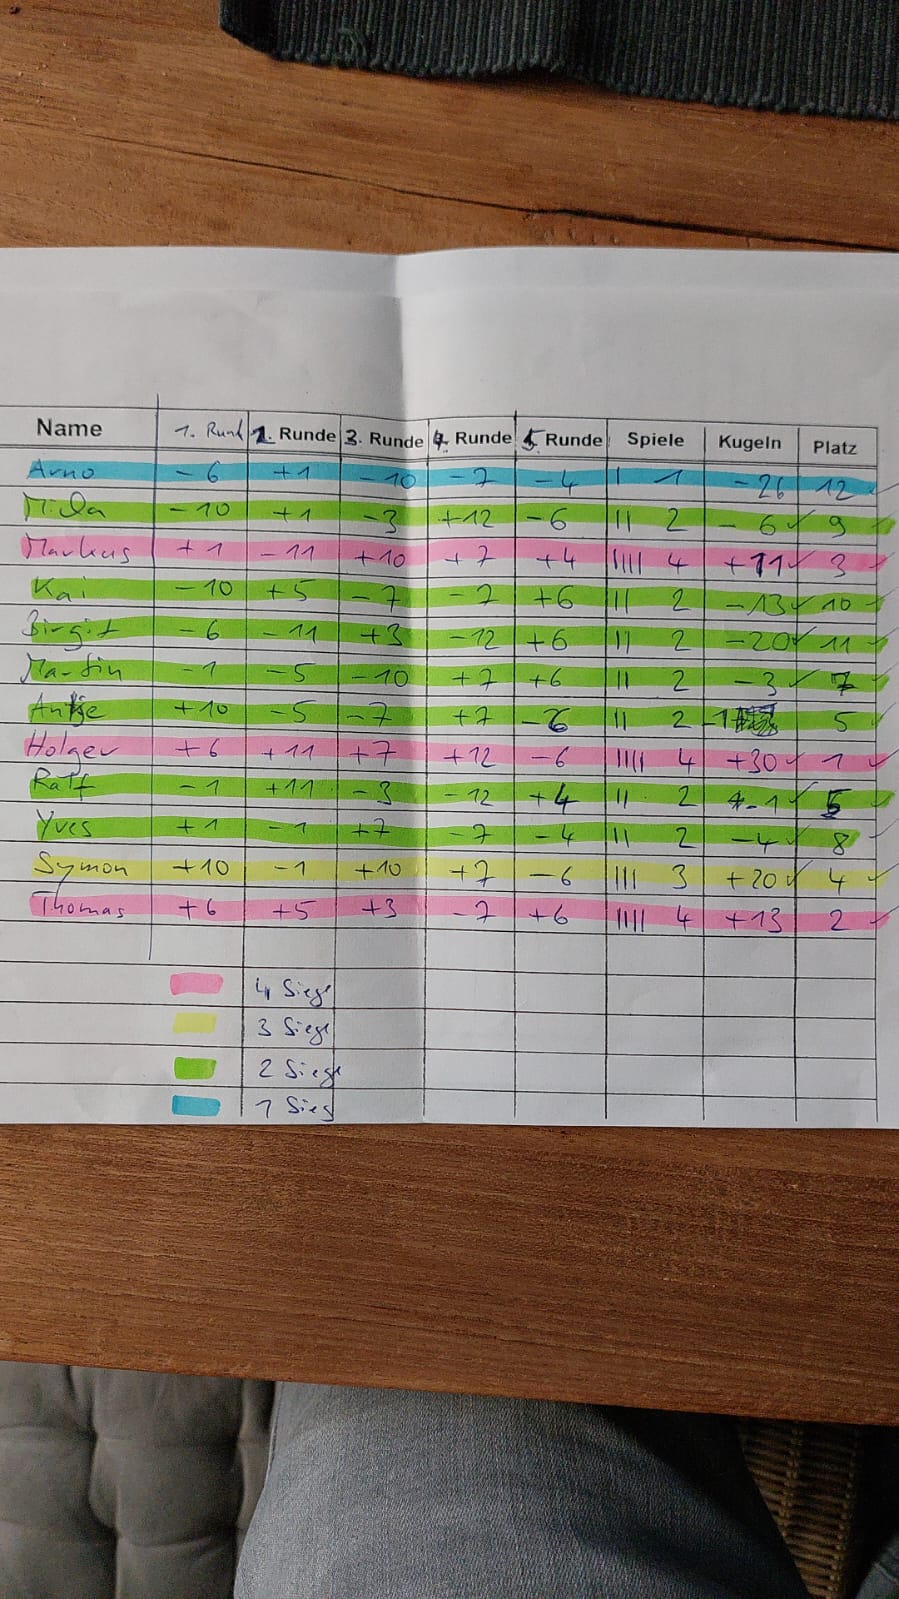 Name 1. Rund 2. Runde 3. Runde 4. Runde 5. Runde Spiele Kugeln Platz
Arno -6 +1 -10 -7 -4 | 1 -26 12
-10 +1 -3 +12 -6 || 2 -6 9
Markus +1 -11 +10 +7 +4 |||| 4 +11 3
Kai -10 +5 -7 -7 +6 || 2 -13 10
Birgit -6 -11 +3 -12 +6 || 2 -20 11
Martin -1 -5 -10 +7 +6 || 2 -3 7
Antje +10 -5 -7 +7 -6 || 2 -1 5
Holger +6 +11 +7 +12 -6 |||| 4 +30 1
Ralf -1 +11 -3 -12 +4 || 2 -1 5
Yves +1 -1 +7 -7 -4 || 2 -4 8
Symon +10 -1 +10 +7 -6 ||| 3 +20 4
Thomas +6 +5 +3 -7 +6 |||| 4 +13 2
4 Siege
3 Siege
2 Siege
1 Sieg